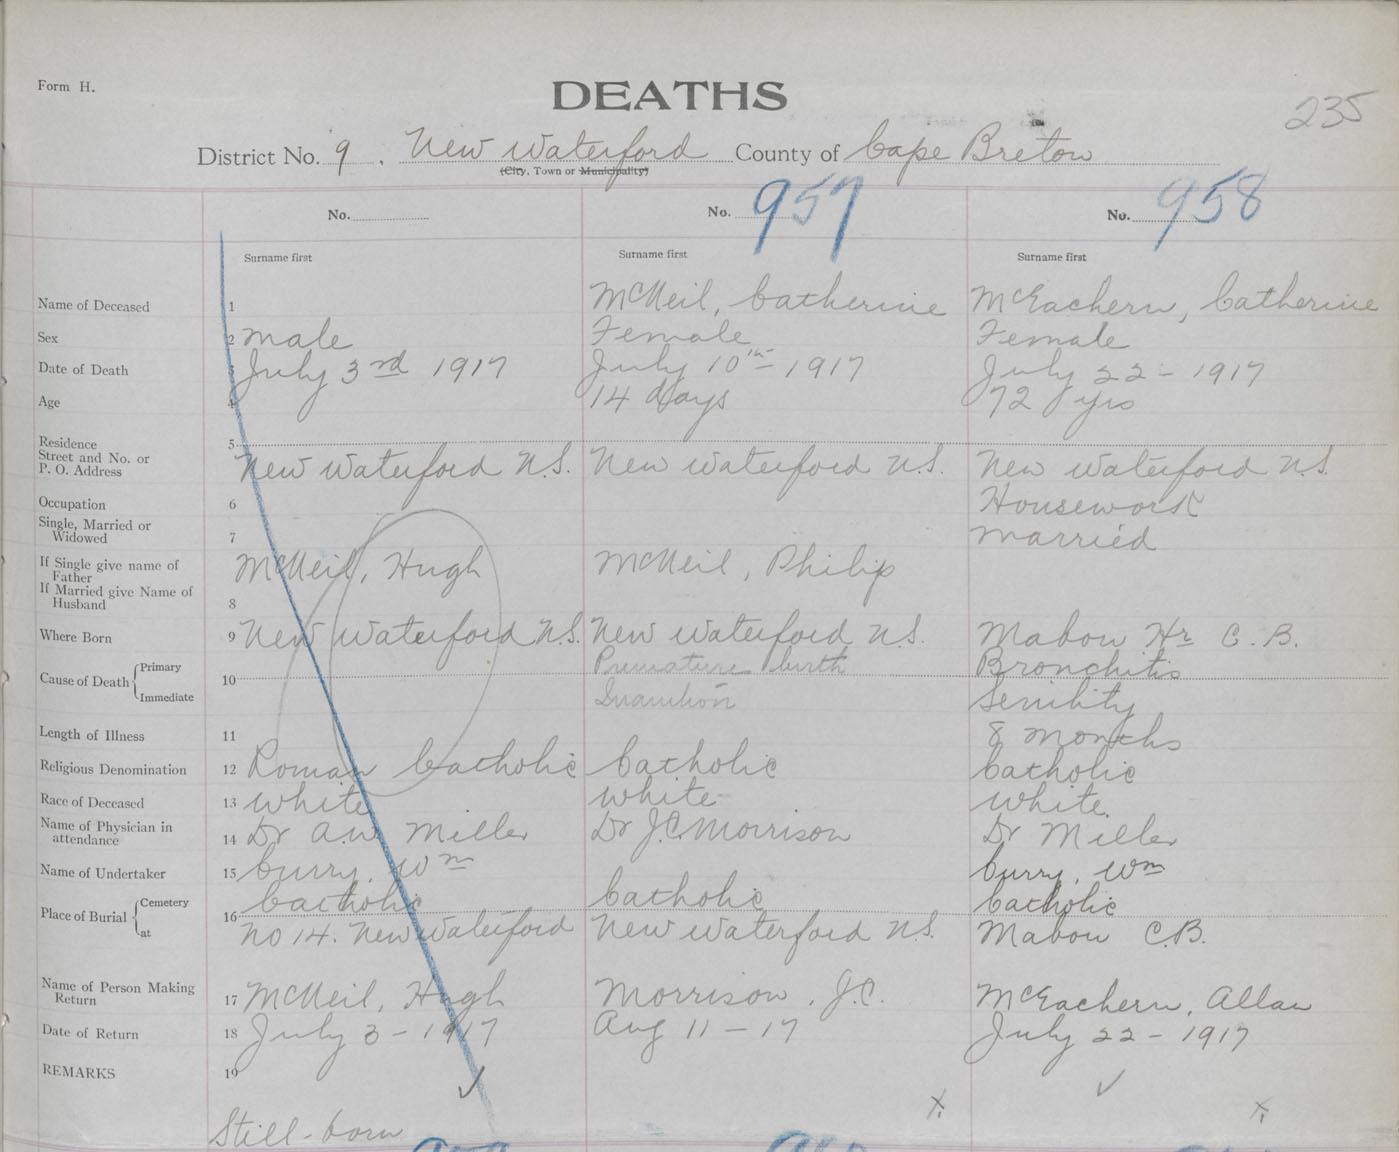 Form H.
DEATHS
235
District No. 9. New Waterford County of Cape Breton
(City, Town or Municipality)
No. No. 957 No. 958
Surname first Surname first Surname first
Name of Deceased 1 McNeil, Catherine McEachern, Catherine
Sex 2 male Female Female
Date of Death 3 July 3rd 1917 July 10th - 1917 July 22 - 1917
Age 4 14 days 72 yrs
Residence 5
Street and No. or
P. O. Address New Waterford N.S. New Waterford N.S. New Waterford N.S.
Occupation 6 Housework
Single, Married or
Widowed 7 married
If Single give name of
Father McNeil, Hugh McNeil, Philip
If Married give Name of
Husband 8
Where Born 9 New Waterford N.S. New Waterford N.S. Mabou Hr C.B.
Cause of Death Primary 10 Premature birth Bronchitis
Immediate Inanition Senility
Length of Illness 11 8 months
Religious Denomination 12 Roman Catholic Catholic Catholic
Race of Deceased 13 White White White
Name of Physician in
attendance 14 Dr A.W. Miller Dr J.C. Morrison Dr Miller
Name of Undertaker 15 Curry, Wm Curry, Wm
Place of Burial Cemetery 16 Catholic Catholic Catholic
at No 14. New Waterford New Waterford N.S. Mabou C.B.
Name of Person Making
Return 17 McNeil, Hugh Morrison, J.C. McEachern, Allan
Date of Return 18 July 3 - 1917 Aug 11 - 17 July 22 - 1917
REMARKS 19
Still-born